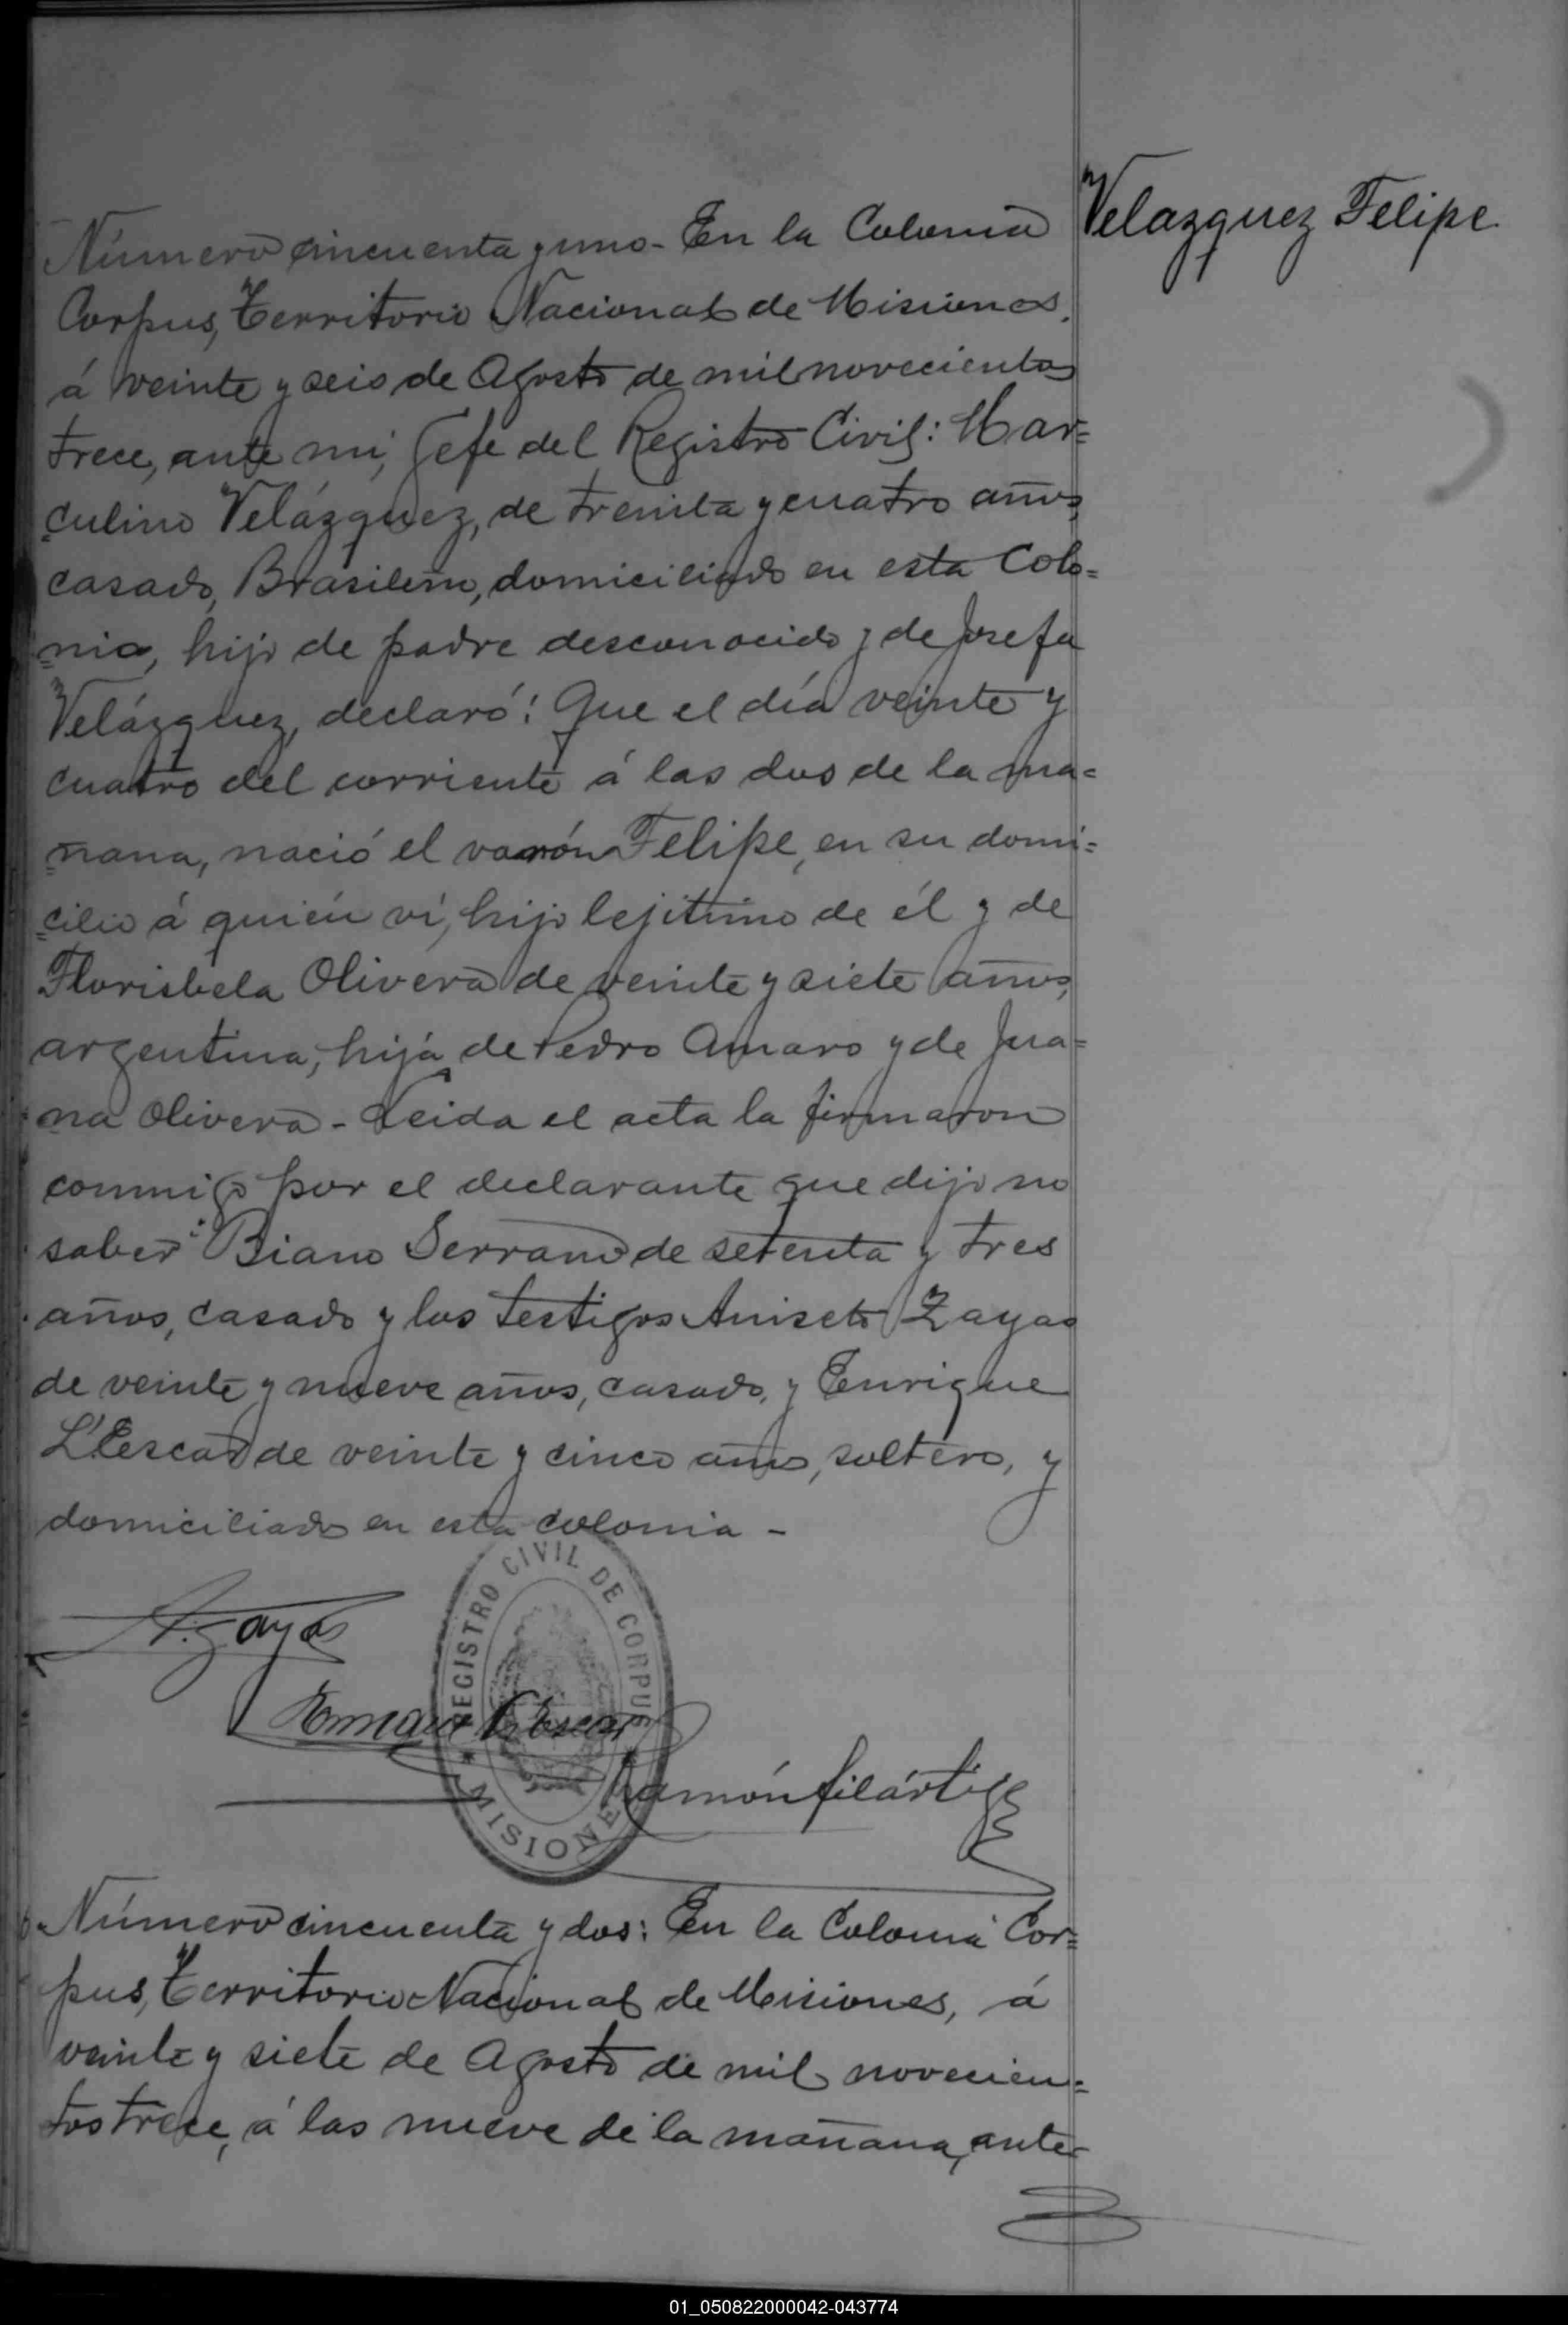 Velazquez Felipe
Número cincuenta y uno - En la Colonia
Corpus, Territorio Nacional de Misiones,
á veinte y seis de Agosto de mil novecientos
trece, ante mi, Jefe del Registro Civil: Mar=
culino Velázquez, de treinta y cuatro años,
casado, Brasileño, domiciliado en esta Colo=
nia, hijo de padre desconocido y de Josefa
Velázquez, declaró: Que el día veinte y
cuatro del corriente á las dos de la ma=
ñana, nació el varón Felipe, en su domi=
cilio á quién ví, hijo lejítimo de él y de
Florisbela Olivera de veinte y siete años,
argentina, hija de Pedro Amaro y de Jua=
na Olivera - Leida el acta la firmaron
conmigo por el declarante que dijo no
saber: Biano Serrano de setenta y tres
años, casado y los testigos Aniseto Zayas
de veinte y nueve años, casado, y Enrique
de veinte y cinco años, soltero, y
domiciliado en esta colonia -
A. Zayas
REGISTRO CIVIL DE CORPUS
* MISIONES *
Enrique
Ramón filártiga
Número cincuenta y dos: En la Colonia Cor=
pus, Territorio Nacional de Misiones, á
veinte y siete de Agosto de mil novecien=
tos trece, á las nueve de la mañana, ante
01_050822000042-043774